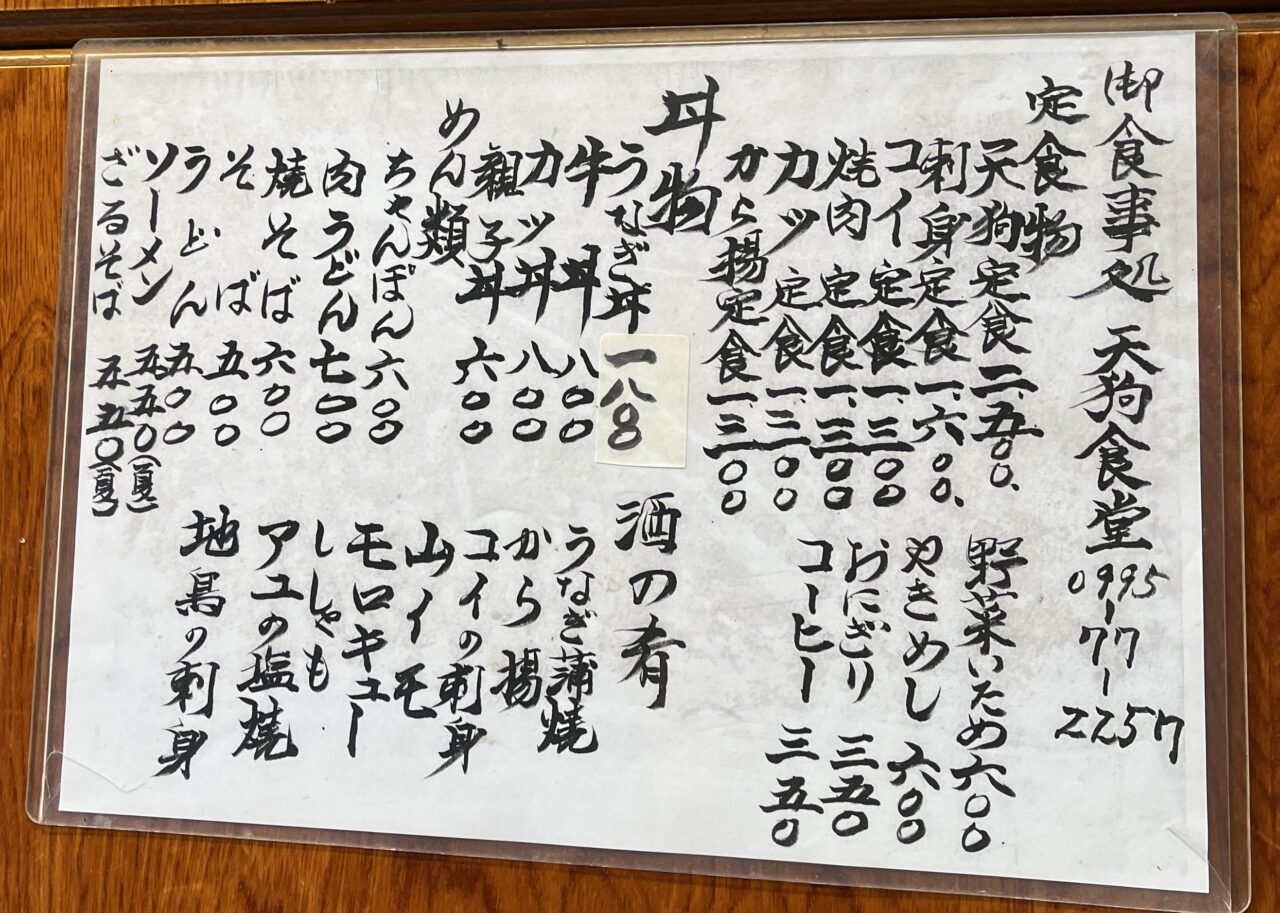 御食事処 天狗食堂 0995-77-2257
定食物
天狗定食 二、五〇〇、
刺身定食 一、六〇〇、
コイ定食 一、三〇〇
焼肉定食 一、三〇〇
カツ定食 一、三〇〇
から揚定食 一、三〇〇
野菜いため 六〇〇
やきめし 六〇〇
おにぎり 三五〇
コーヒー 三五〇
丼物
うなぎ丼 一八〇〇
牛丼 八〇〇
カツ丼 八〇〇
親子丼 六〇〇
めん類
ちゃんぽん 六〇〇
肉うどん 七〇〇
焼そば 六〇〇
そば 五〇〇
うどん 五〇〇
ソーメン 五五〇(夏)
ざるそば 五五〇(夏)
酒の肴
うなぎ蒲焼
から揚
コイの刺身
山イモ
モロキュー
ししゃも
アユの塩焼
地鳥の刺身